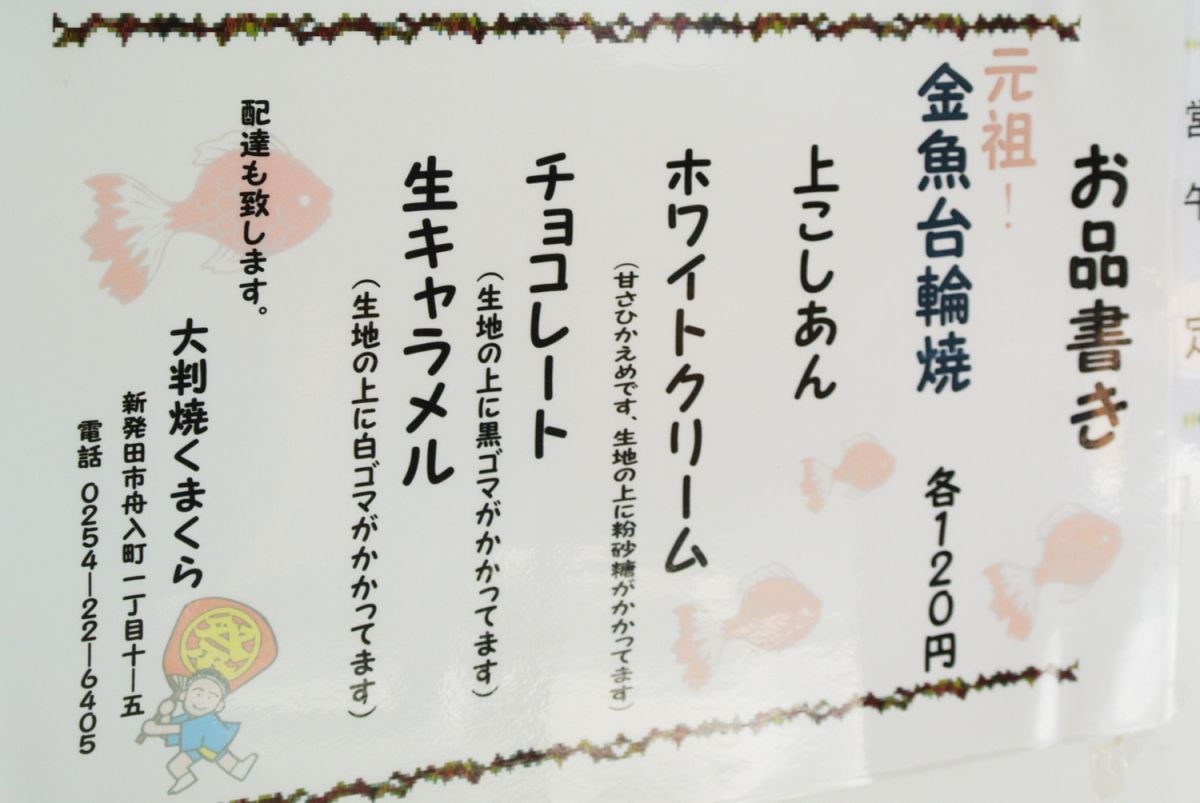 お品書き
元祖!
金魚台輪焼 各120円
上こしあん
ホワイトクリーム
(甘さひかえめです、生地の上に粉砂糖がかかってます)
チョコレート
(生地の上に黒ゴマがかかってます)
生キャラメル
(生地の上に白ゴマがかかってます)
配達も致します。
大判焼くまくら
新発田市舟入町一丁目十一五
電話 0254ー22ー6405